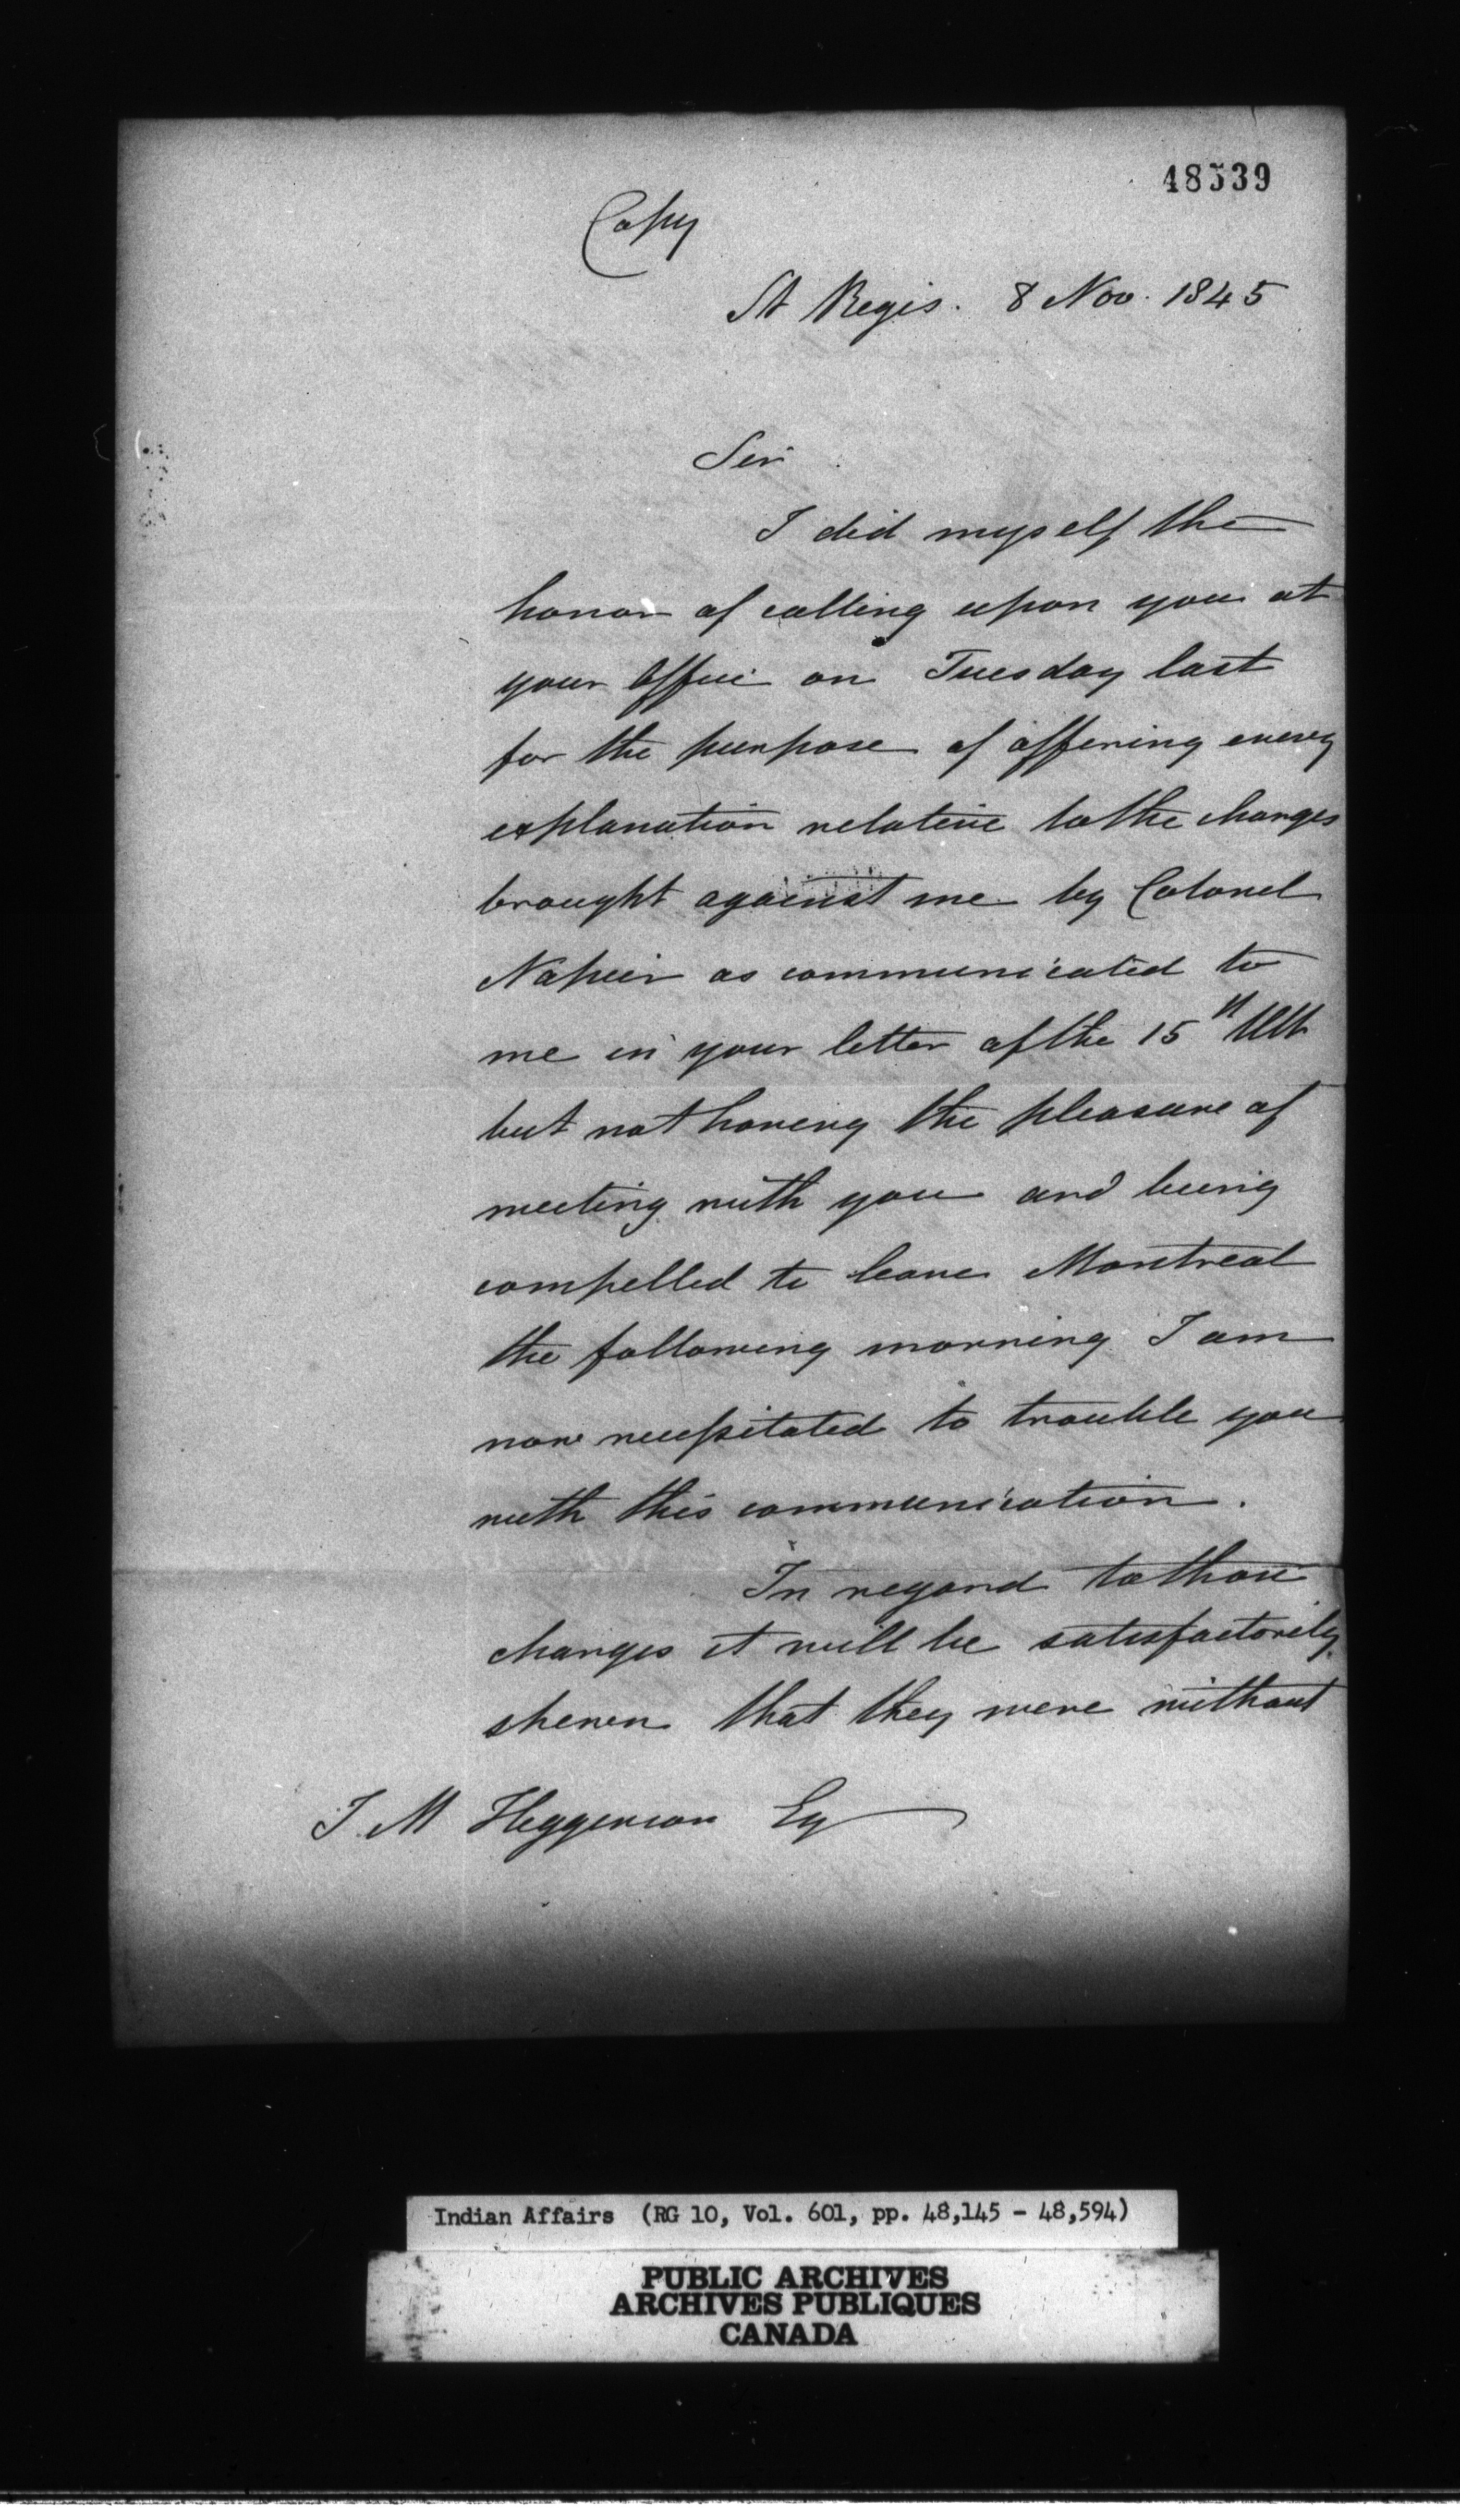 48539
Copy
St Regis. 8 Nov. 1845
Sir
I did myself the
honor of calling upon you at
your Office on Tuesday last
for the purpose of offering every
explanation relative to the charges
brought against me by Colonel
Napier as communicated to
me in your letter of the 15th Ult
but not having the pleasure of
meeting with you and being
compelled to leave Montreal
the following morning I am
now necessitated to trouble you
with this communication.
In regard to those
charges it will be satisfactorily
shewn that they were without
J. M Higginson Esq
Indian Affairs (RG 10, Vol. 601, pp. 48,145 - 48,594)
PUBLIC ARCHIVES
ARCHIVES PUBLIQUES
CANADA